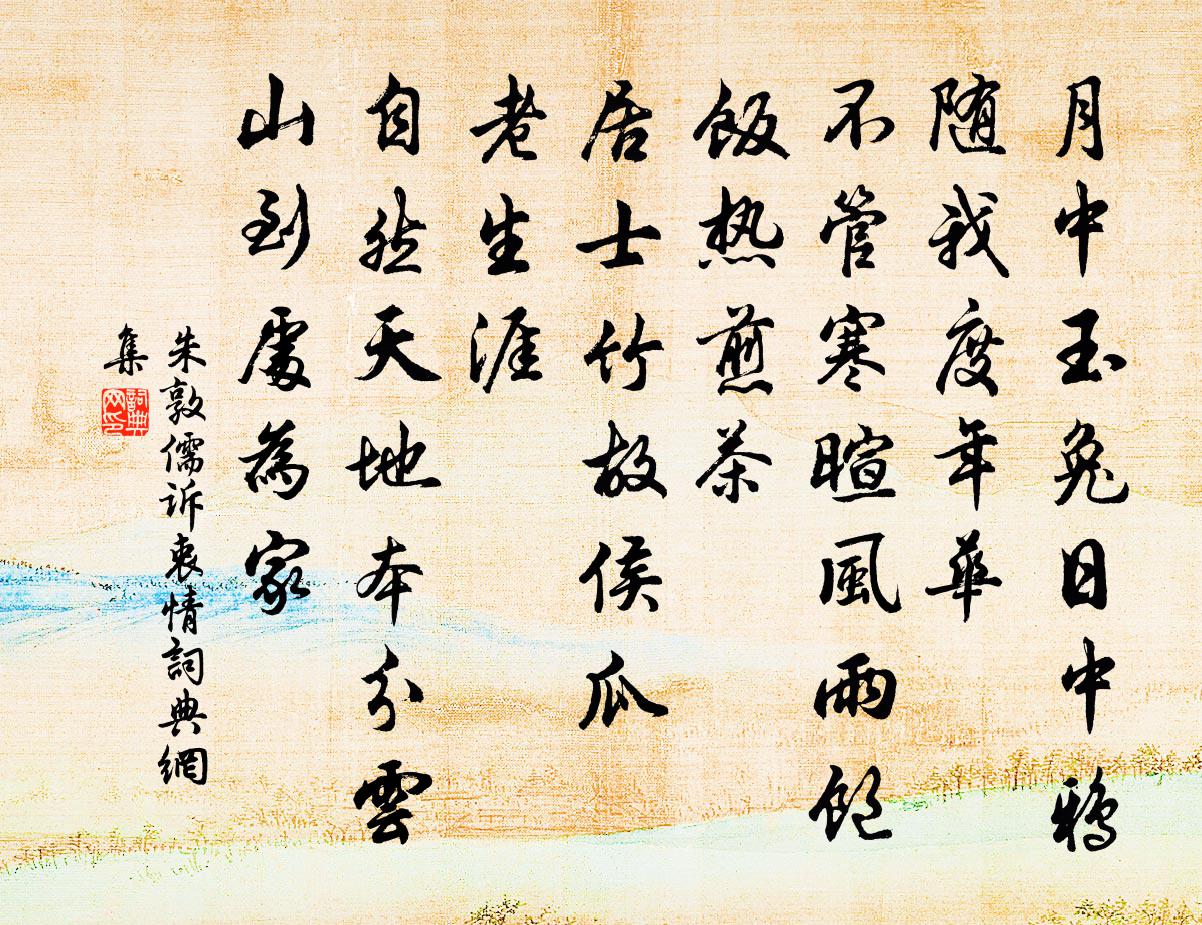 月中玉兔日中鴉
随我度年華
不管寒暄風雨飽
飯热煎茶
居士竹故侯瓜
老生涯
自然天地本分雲
山到處為家
朱敦儒訴衷情詞典網
集
詞典
网印